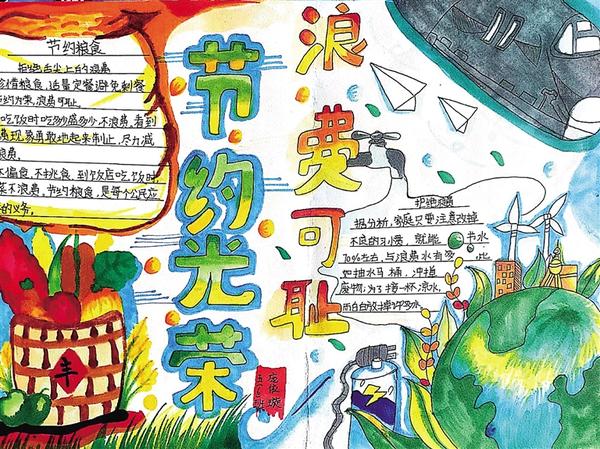 节约粮食
拒绝舌尖上的浪费
珍惜粮食,适量定餐避免剩餐
节约为荣,浪费可耻。
吃饭时吃多少盛多少不浪费,看到
费现象勇敢地起来制止,尽力减
浪费。
不偏食,不挑食,到饭店吃饭时
菜不浪费。节约粮食,是每个公民应
的义务。
节约光荣
浪费可耻
拒绝浪费
据分析,家庭只要注意改掉
不良的习惯,就能 节水
70%左右,与浪费水有 ,比
如抽水马桶,冲掉
废物;为了接一杯凉水,
而白白放掉许多水
丰